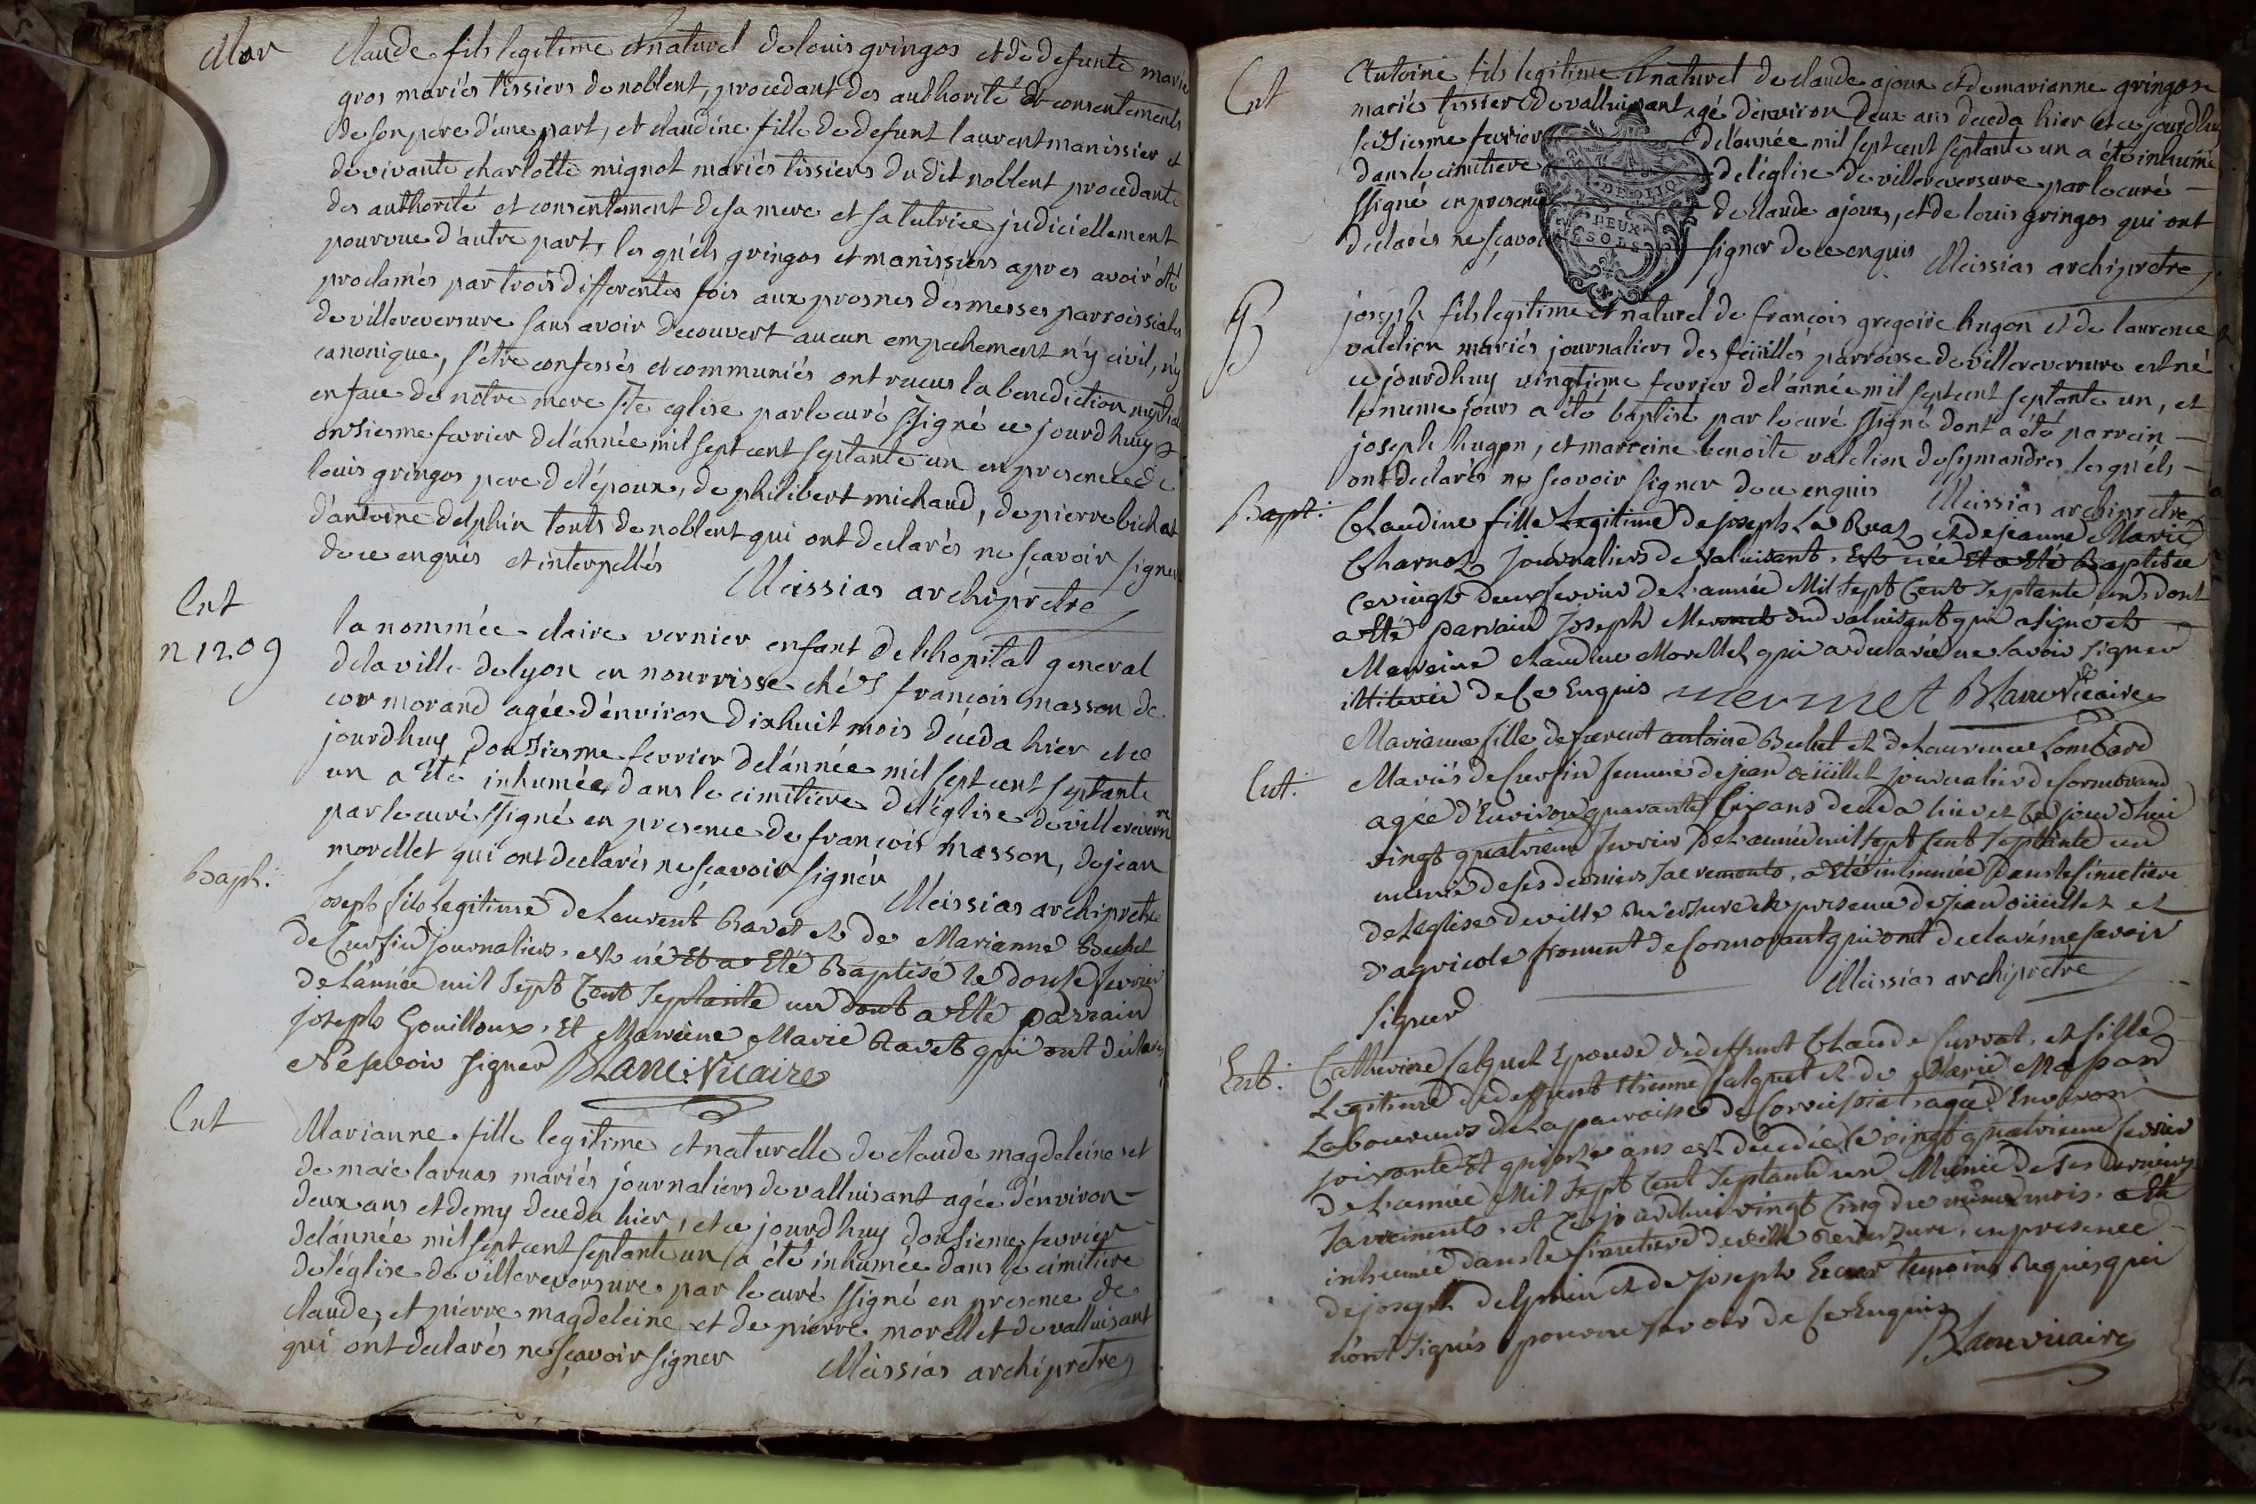 Mar
claude fils legitime et naturel de louis gringos et de defunte marie
gros mariés tissiers de noblent, procedant des authorité et consentements
de son pere d'une part, et claudine fille de defunt laurent manissier et
de vivante charlotte mignot mariés tissiers dudit noblent procedante
des authorité et consentement de sa mere et sa tutrice judiciellement
pourvue d'autre part, les quéls gringos et manissiers apres avoir été
proclamés par trois differentes fois aux prosnes des messes parroissiales
de villereversure sans avoir decouvert aucun empechement n'y civil, n'y
canonique, s'etre confessés et communiés ont recus la benediction nuptiale
en face de notre mere ste eglise par le curé ssigné ce jourdhuy
onsiesme fevrier de l'année mil sept cent septante un en presence de
louis gringos pere de l'époux, de philibert michaud, de pierre bichat
d'antoine delphin touts de noblent qui ont declarés ne scavoir signer
de ce enquis et interpellés Meissias archiprètre
Ent
n 1209
la nommée claire vernier enfant de l'hopital general
de la ville de lyon en nourrisse chés françois masson de
cormorand agée d'environ dixhuit mois déceda hier et ce
jourdhuy dousiesme fevrier de l'année mil sept cent septante
un a été inhumée dans le cimitiere de l'église de villerevers
par le curé ssigné en presence de françois masson, de jean
morellet qui ont declarés ne sçavoir signér
Meissias archiprètre
Bapt:
Joseph fils Legitime de Laurent Ravet et de Marianne Bechet
de Cursin journaliers, est né Et a Eté Baptisé le douse fevrier
de L'année mil sept Cent septante un dont a Eté parrain
joseph Gouilloux, Et Marreine Marie Ravet qui ont déclaré
Ne scavoir signer BLanc Vicaire
Ent
Marianne fille legitime et naturelle de claude magdeleine et
de marie laruas mariés journaliers de valluisant agée d'environ
deux ans et demy deceda hier, et ce jourdhuy dousieme fevrier
de l'année mil sept cent septante un a été inhumée dans le cimitiere
de l'église de villereversure par le curé ssigné en presence de
claude, et pierre magdeleine et de pierre morellet de valluisant
qui ont declarés ne sçavoir signer Meissias archiprètre
Ent
Antoine fils legitime et naturel de claude ajoux et de marianne gringos
mariés tissier de valluisant agé d'environ deux ans deceda hier et ce jourdhuy
seisiesme fevrier de l'année mil sept cent septante un a été inhumé
dans le cimitiere de l'église de villereversure par le curé
ssigné en presence de claude ajoux, et de louis gringos qui ont
declarés ne sçavoir signer de ce enquis Meissias archiprètre
DEUX
SOLS
B
joseph fils legitime et naturel de françois gregoire hugon et de laurence
valelion mariés journaliers des feüilles parroisse de villereversure est né
ce jourdhuy vingtieme fevrier de l'année mil sept cent septante un, et
le meme jours a été baptisé par le curé ssigné dont a été parrain
joseph hugon, et marreine benoite valelion de symandres les quéls
ont declarés ne scavoir signer de ce enquis Meissias archiprètre
Bapt:
Claudine fille Legitime de joseph La Ruaz et de jeanne Marie
Charnoz journaliers de valuisant, Est née Et a Eté Baptisée
ce vingt deux fevrier de L'année Mil sept Cent septante un dont
a Eté parrain joseph Mermet dud valuisant qui a signé et
Marreine claudine Morellet qui a declaré ne savoir signer
illiterée de Ce Enquis mermet BLanc Vicaire
Ent:
Marianne fille de fuent antoine Bechet et de Laurence Lombard
Mariés de Cursin femme de jean oeüillet journalier de Cormorand
agée d'Environ quarante six ans deceda hier et Ce jourd'hui
vingt quatrieme fevrier de L'année mil sept Cent septante un
munie de ses derniers sacrements, a Eté inhumée Dans le Cimetiere
de L'eglise de ville Reversure en presence de jean oeüillet et
d'agricole froment de Cormorant qui ont declaré ne savoir
signer Meissias archiprètre
Ent:
Catherine Salquet Epouse de deffunt Claude Curvat, et fille
Legitime de deffunt Etienne Salquet et de Marie Masson
Laboureurs de La parroisse de Corveissiat, agée d'Environ
soixante Et quinze ans est decedée Le vingt quatrieme fevrier
de L'année Mil sept Cent septante un Munie de ses derniers
sacrements, et Ce jourd'hui vingt Cinq du même mois, a Eté
inhumée dans le Cimetiere de ville Reversure, en presence
de joseph delphin et de joseph temoins Requis qui
n'ont signés pour ne savoir de Ce Enquis
BLanc vicaire